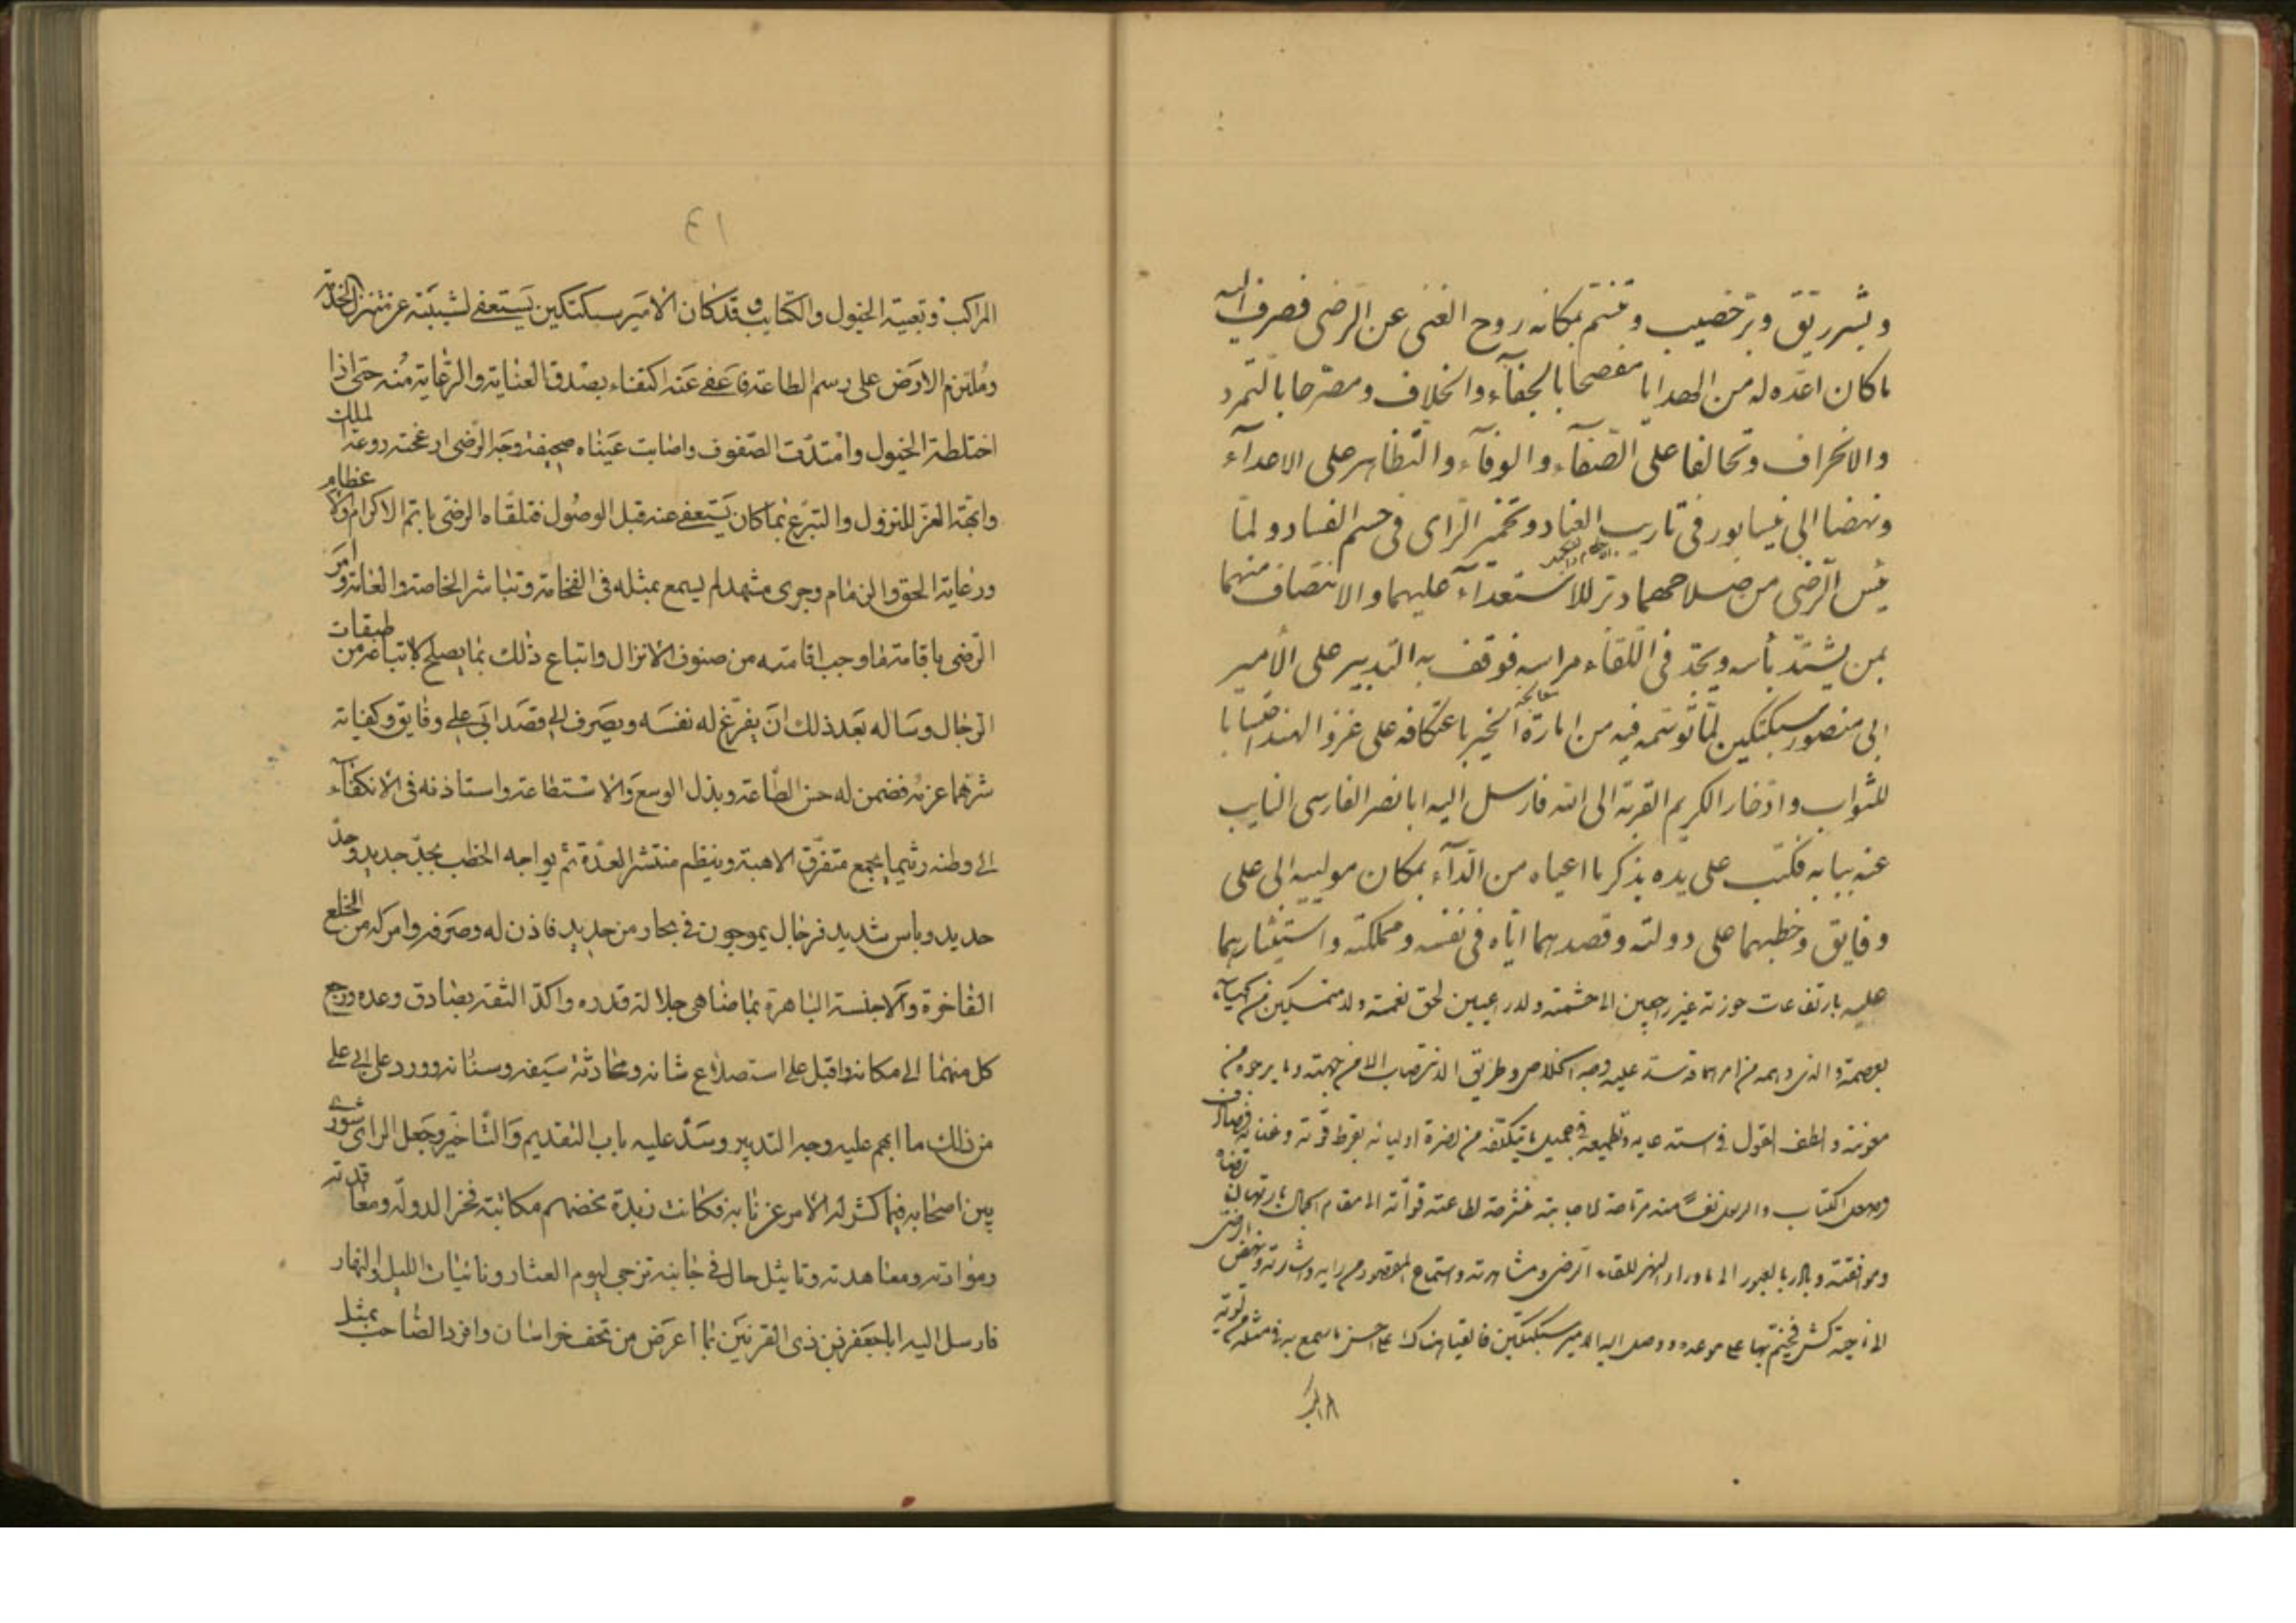 وبشر ريق وبر خصيب وتنسم بمكانه روح الغنى عن الرضى فصرف اليه
ما كان اعده له من الهدايا مفصحا بالجفآء والخلاف ومصرحا بالتمرد
والانحراف وتحالفا على الصفآء والوفآء والتظاهر على الاعدآء
ونهضا الى نيسابور فى تاريب العناد وتخمير الراى فى حسم الفساد ولما
يئس الرضى من صلاحهما دبر للاستعدآء عليهما والانتصاف منهما
بمن يشتد بأسه ويحد فى اللقآء مراسه فوقف به التدبير على الامير
ابى منصور سبكتكين لما توسمه فيه من امارة الخير باعتكافه على غزو الهند احتسابا
للثواب وادخار الكريم القربة الى الله فارسل اليه ابا نصر الفارسى النايب
عنه ببابه فكتب على يده يذكر ما اعياه من الدآء بمكان مولييه ابى على
وفايق وخطبهما على دولته وقصدهما اياه فى نفسه ومملكته واستيثارهما
عليه بارتفاعات حوزته غير راجعين الى حشمته ولا راعيين لحق نعمته ولا متمسكين من
بعصمة والذى دهمه من امرهما قد سد عليه وجه الخلاص وطريق
معونته ولطف القول فى استدعايه من نصرة اوليائه بفرط قوته وغنائه فصادف
وصول الكتاب والرسول نفسا منه مرتاحة لاجابته
وموافقته وبادر بالعبور الى ماوراء النهر للقاء الرضى ومشاهدته واستماع المقصود من رايه واشارته ونهض الرضى
الى ناحية كش فخيم بها على موعده ووصل اليه الامير سبكتكين فالتقيا هناك على احسن ما سمع به فى مثله من تسوية
المراكب
٤١
المراكب وتعبية الخيول والكتايب وقد كان الامير سبكتكين يستعفى لشيبته عن تنزل الخدمة
وملتزم الارض على رسم الطاعة فاعفى عنه اكتفاء بصدق العناية والرعاية منه حتى اذا
اختلطت الخيول وامتدت الصفوف واصابت عيناه صحيفة وجه الرضى ازعجته روعة الملك
وابهة العز للنزول والتبرع بما كان يستعفى عنه قبل الوصول فتلقاه الرضى باتم الاكرام والاعظام
ورعاية الحق والذمام وجرى مشهد لم يسمع بمثله فى الفخامة وتباشر الخاصة والعامة وامر
الرضى باقامة ما وجب اقامته من صنوف الانزال واتباع ذلك بما يصلح لاتباعه من طبقات
الرجال وساله بعد ذلك ان يفرغ له نفسه ويصرف الى قصد ابى على وفايق وكفاية
شرهما عزمه فضمن له حسن الطاعة وبذل الوسع والاستطاعة واستاذنه فى الانكفآء
الى وطنه ريثما يجمع متفرق الاهبة وينظم منتشر العدة ثم يواجه الخطب بجد جديد وحد
حديد وباس شديد فى رجال يموجون فى بحار من حديد فاذن له وصرفه وامر له من الخلع
الفاخرة والاجنسة الباهرة بما ضاهى جلالة قدره واكد الثقة بصادق وعده ورجع
كل منهما الى مكانه واقبل على استصلاح شانه ومحادثة سيفه وسنانه وورد على ابى على
من ذلك ما ابهم عليه وجه التدبير وسد عليه باب التقديم والتاخير وجعل الراى شورى
بين اصحابه فيما كشر له الامر عن نابه فكانت زبدة مخضهم مكاتبة فخر الدولة ومعاقدته
وموادته ومعاهدته وتاثيل حال فى جانبه ترجى ليوم العثار ونائبات الليل والنهار
فارسل اليه ابا جعفر بن ذى القرنين بما اعرض من تحف خراسان وافرد الصاحب بمثل